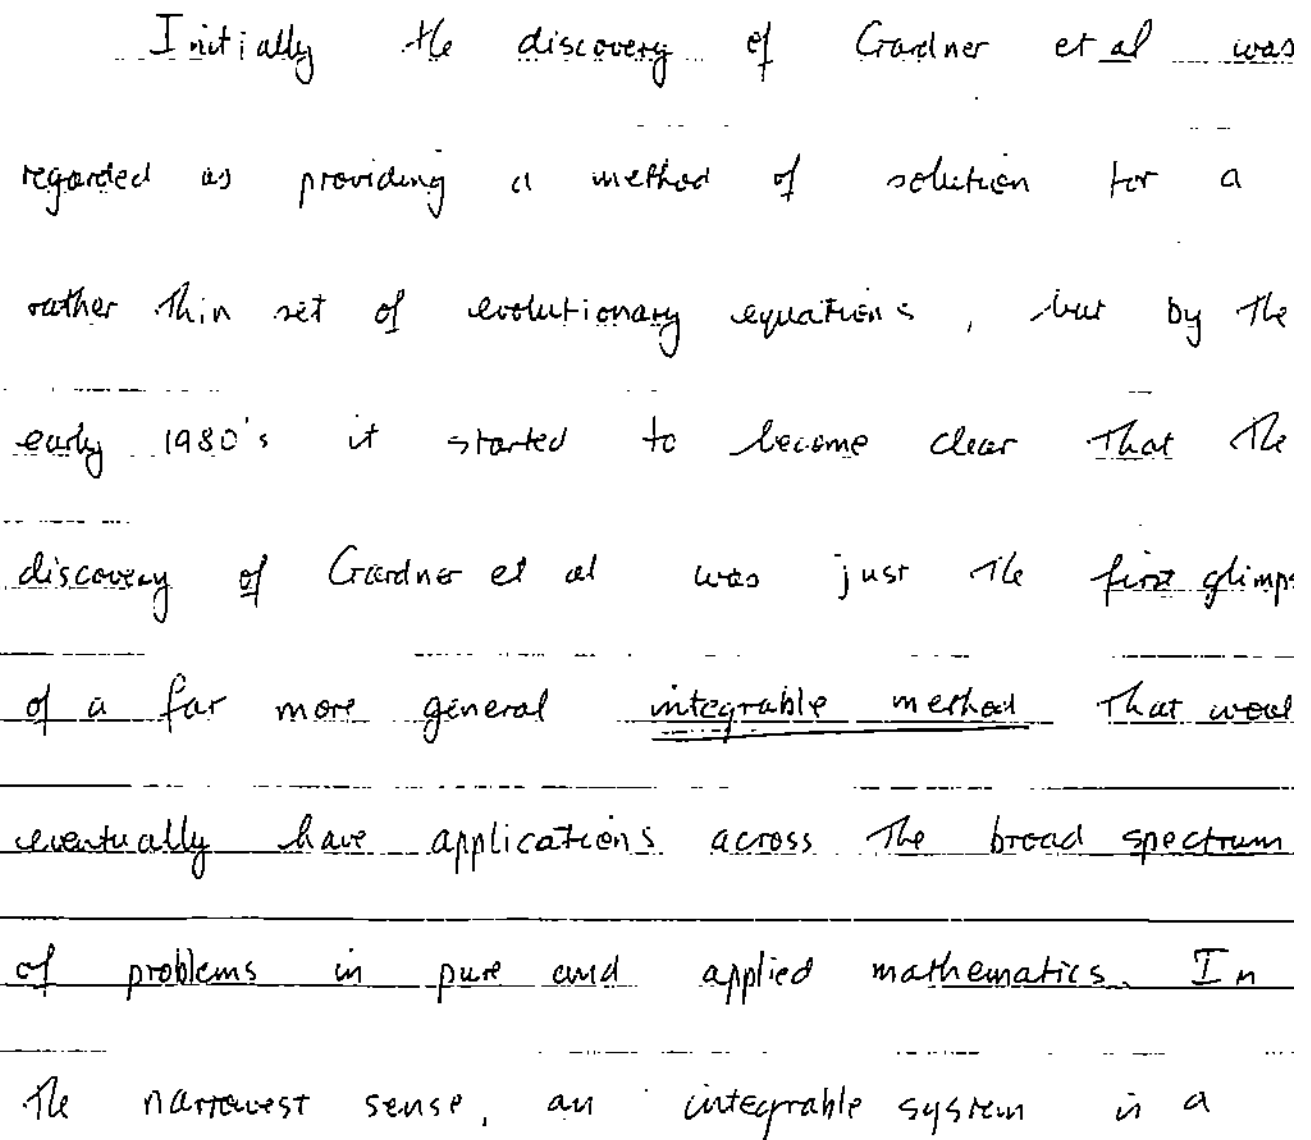 Initially the discovery of Gardner et al was
regarded as providing a method of solution for a
rather thin set of evolutionary equations, but by the
early 1980's it started to become clear that the
discovery of Gardner et al was just the first glimps
of a far more general integrable method that woul
eventually have applications across the broad spectrum
of problems in pure and applied mathematics. In
the narrowest sense, an integrable system is a